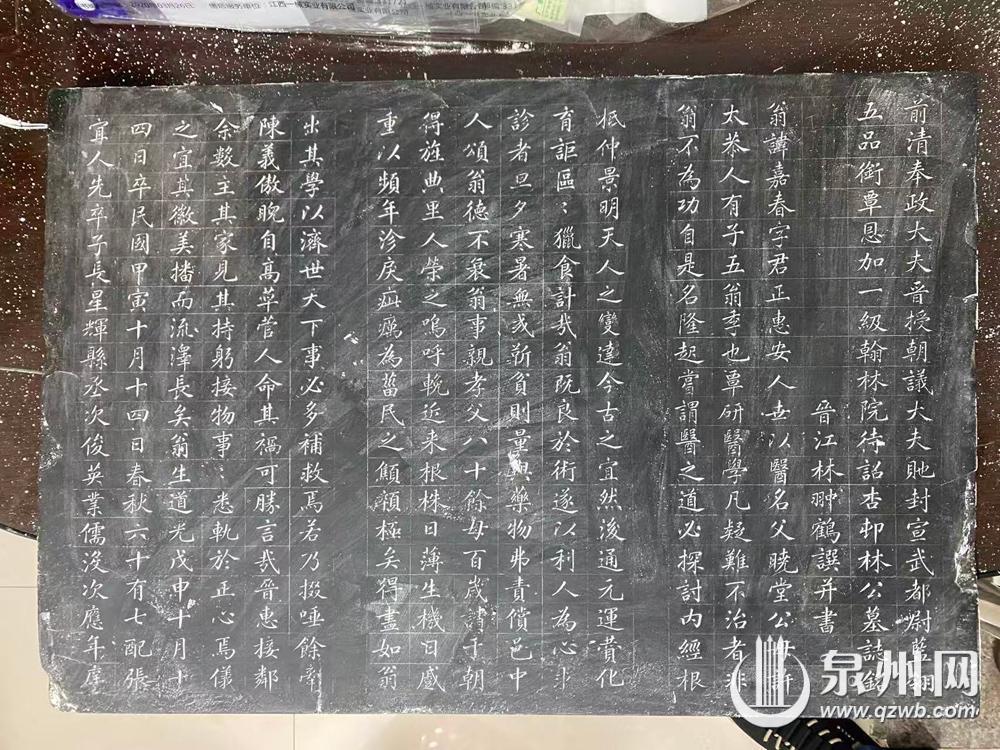 前清奉政大夫晋授朝議大夫貤封宣武都尉藍翎
五品銜覃恩加一級翰林院待詔杏邨林公墓誌銘
晉江林翀鶴譔并書
翁諱嘉春字君正惠安人世以醫名父曉堂公母許
太恭人有子五翁季也覃研醫學凡疑難不治者非
翁不為功自是名隆起嘗謂醫之道必探討内經根
柢仲景明天人之變達今古之宜然後通元運貲化
育詎區〻獵食計哉翁既良於術遂以利人為心求
診者旦夕寒暑無或靳貧則量與藥物弗責償邑中
人頌翁德不衰翁事親孝父八十餘母百歲請于朝
得旌典里人榮之嗚呼輓近来根株日薄生機日慼
重以頻年沴戾疵癘為菑民之顛顇極矣得盡如翁
出其學以濟世天下事必多補救焉若乃掇唾餘辭
陳義傲睨自高草菅人命其禍可勝言哉晉惠接鄰
余數主其家見其持躬接物事〻悉軌於正心焉儀
之宜其徽美播而流澤長矣翁生道光戊申十月十
四日卒民國甲寅十月十四日春秋六十有七配張
宜人先卒子長星輝縣丞次俊英業儒没次應年庠
泉州网
www.qzwb.com